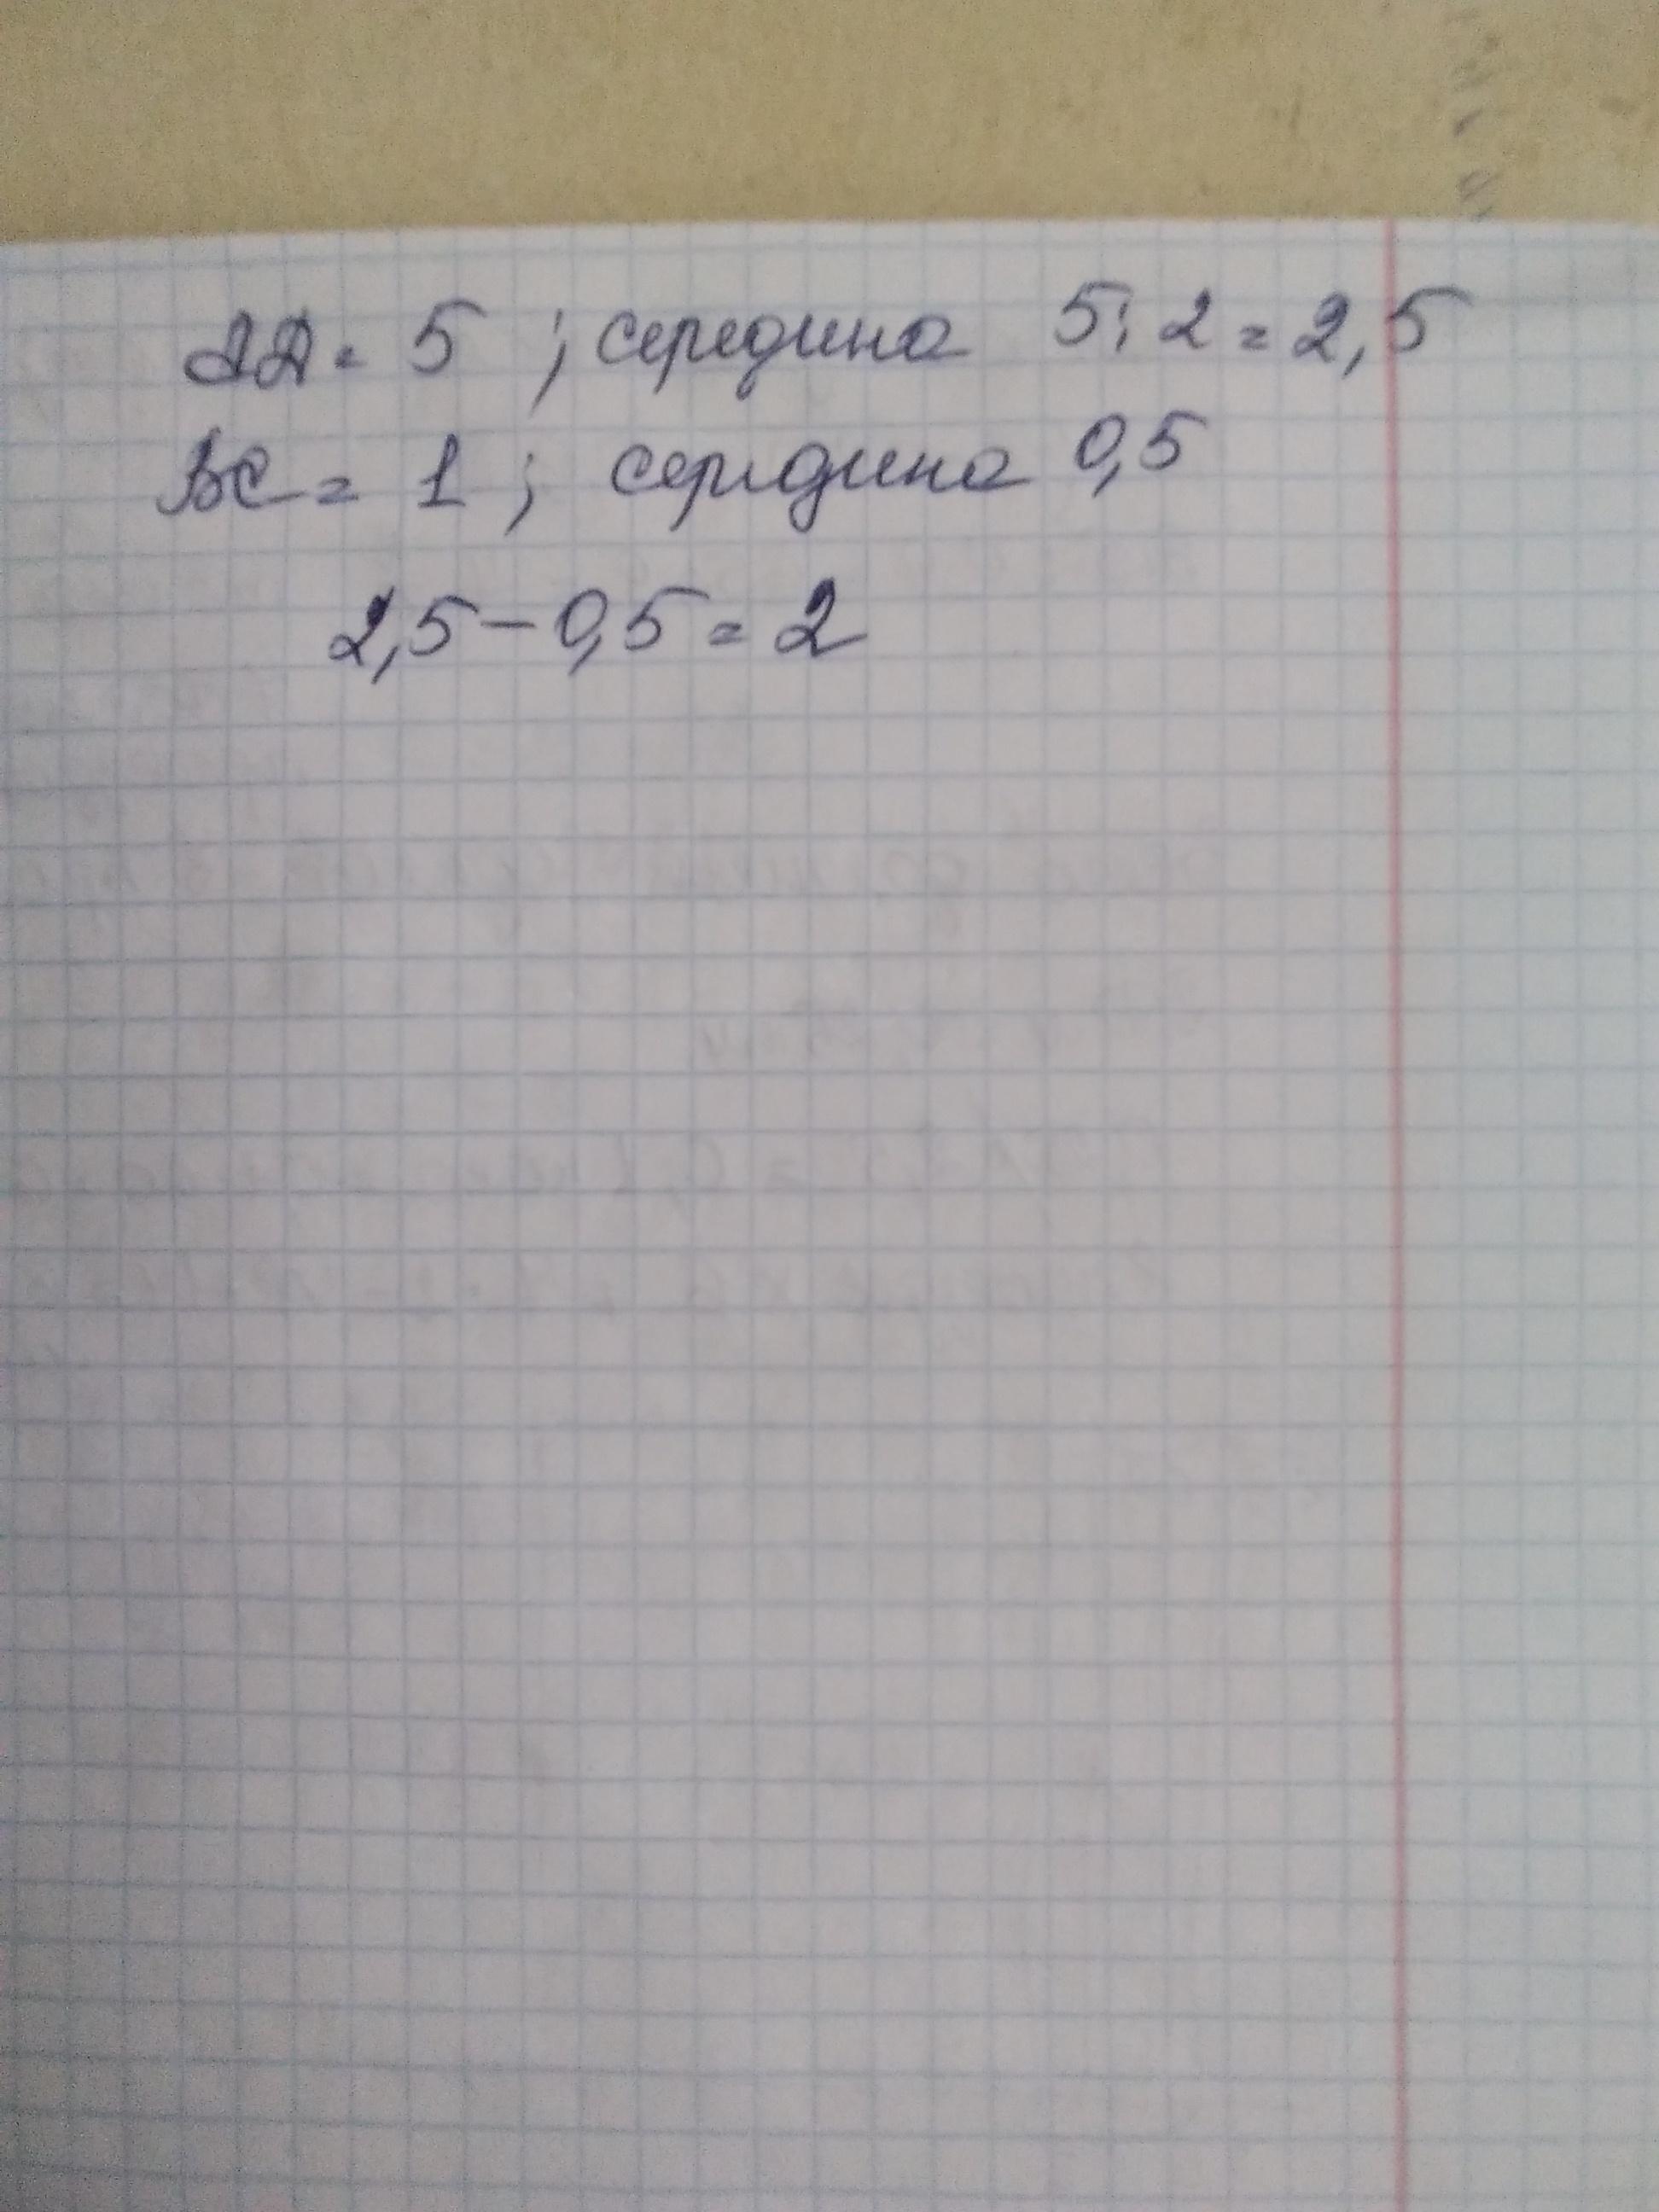 АД = 5 ; середина 5 : 2 = 2,5
ВС = 1 ; середина 0,5
2,5 - 0,5 = 2